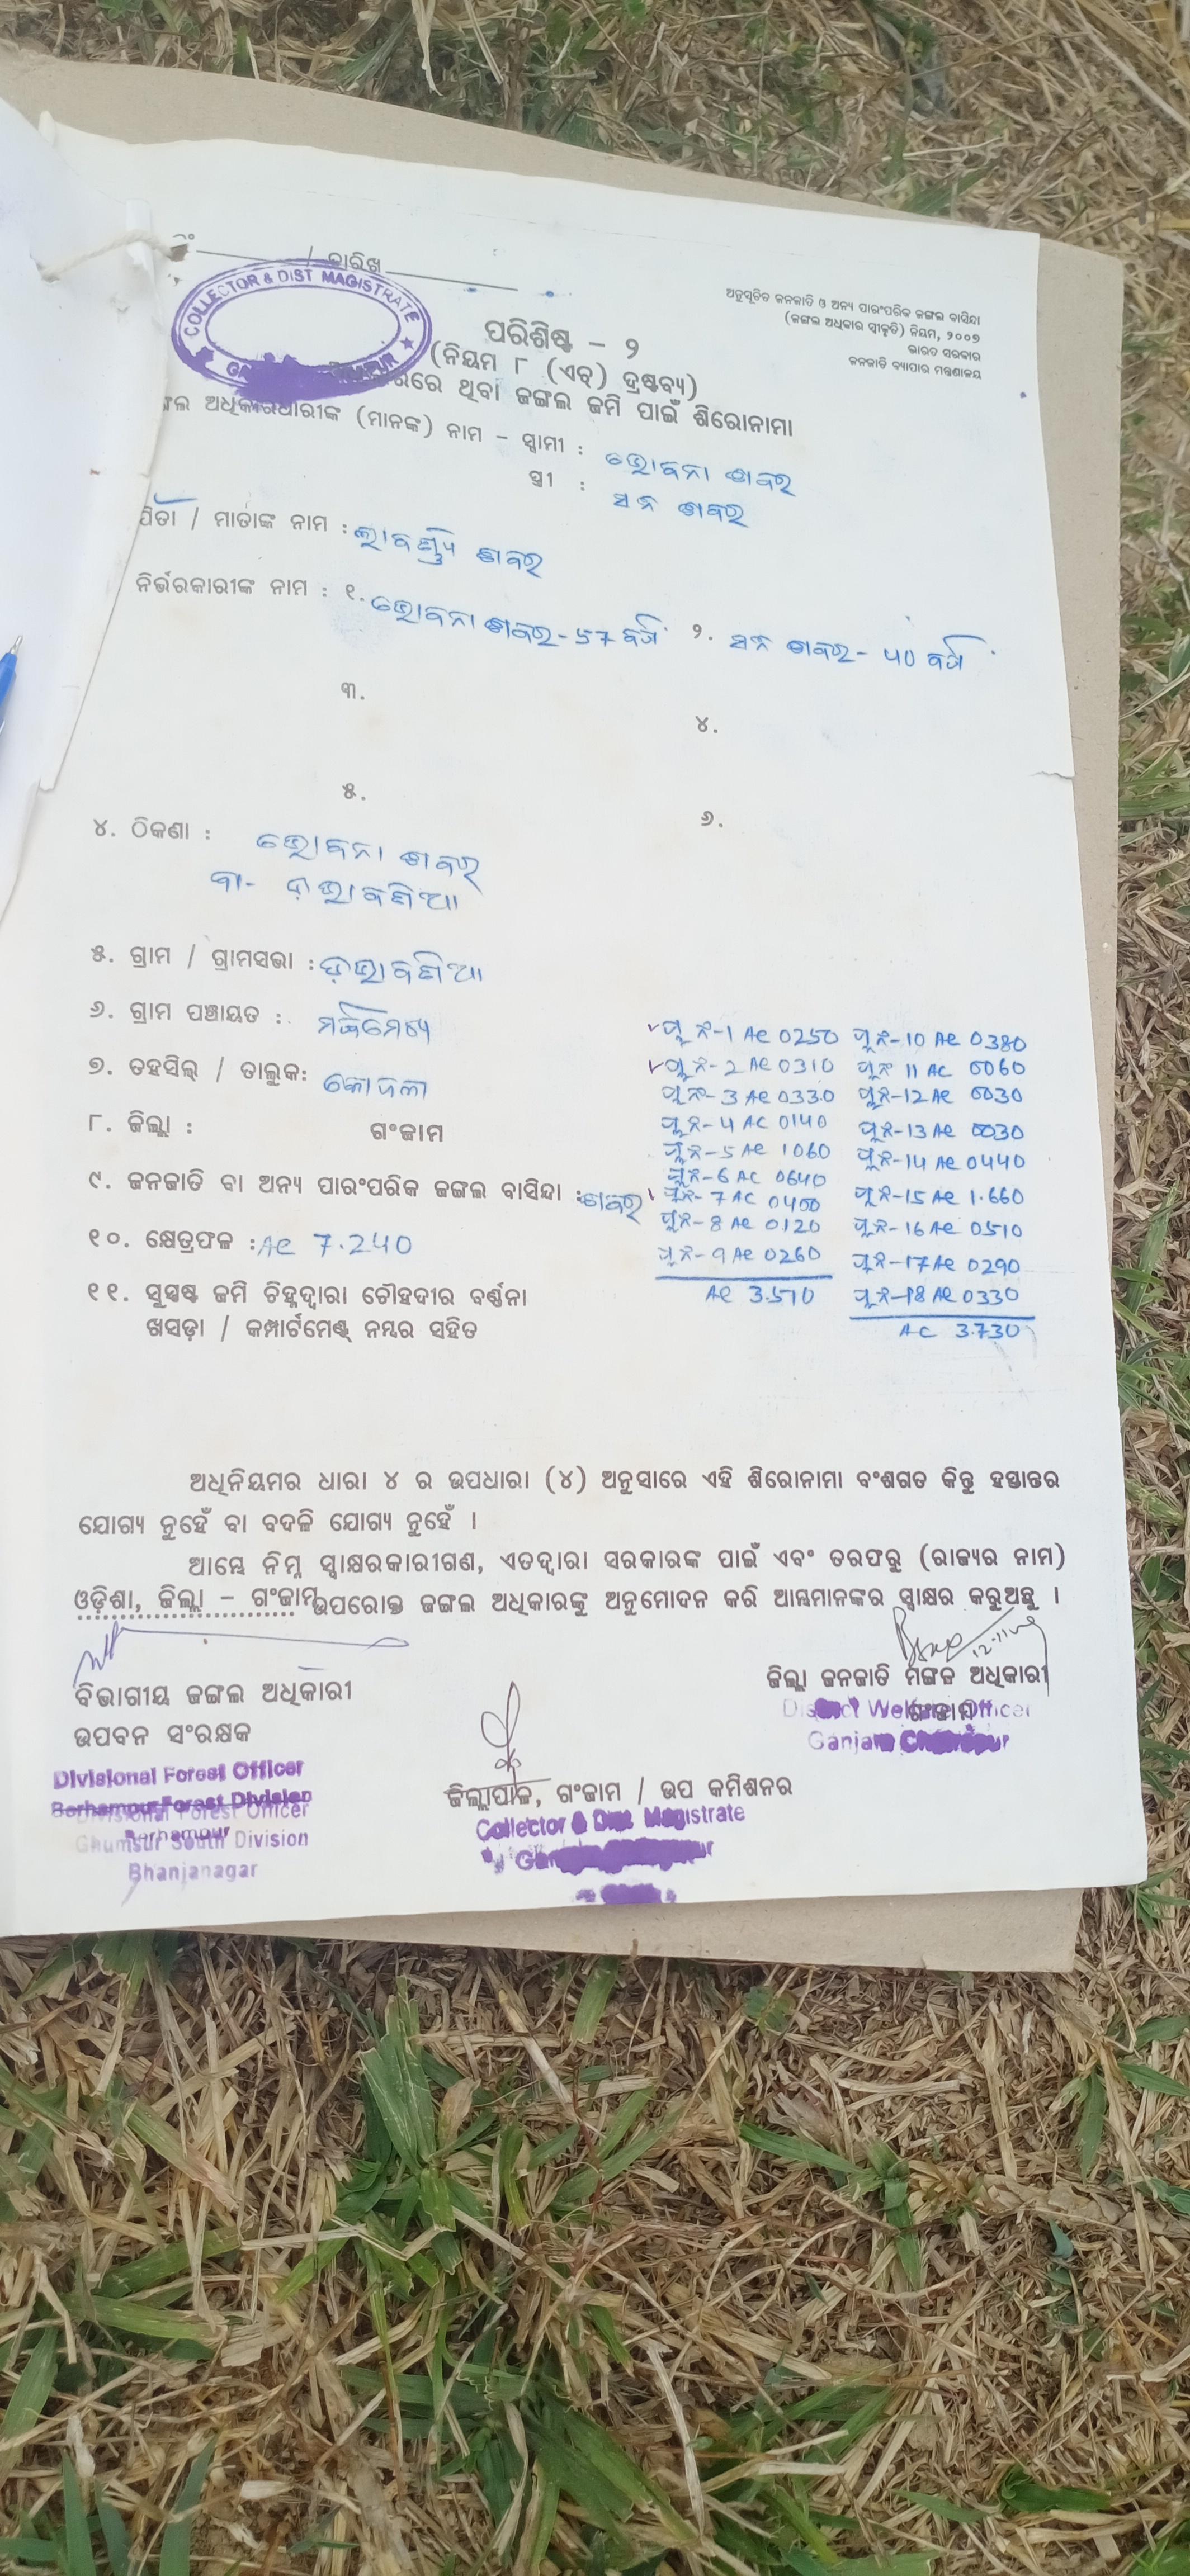 / ତାରିଖ
COLLECTOR & DIST MAGISTRATE
ଅନୁସୂଚିତ ଜନଜାତି ଓ ଅନ୍ୟ ପାରଂପରିକ ଜଙ୍ଗଲ ବାସିନ୍ଦା
(ଜଙ୍ଗଲ ଅଧିକାର ସ୍ୱୀକୃତି) ନିୟମ, ୨୦୦୭
ଭାରତ ସରକାର
ଜନଜାତି ବ୍ୟାପାର ମନ୍ତ୍ରଣାଳୟ
ପରିଶିଷ୍ଟ - ୨
(ନିୟମ ୮ (ଏଚ୍) ଦ୍ରଷ୍ଟବ୍ୟ)
ଥିବା ଜଙ୍ଗଲ ଜମି ପାଇଁ ଶିରୋନାମା
(ମାନଙ୍କ) ନାମ - ସ୍ୱାମୀ : ଭୋବନା ଶବର
ସ୍ତ୍ରୀ : ସନ ଶବର
ପିତା / ମାତାଙ୍କ ନାମ : ଶବର
ନିର୍ଭରକାରୀଙ୍କ ନାମ : ୧. ଭୋବନା ଶବର - 57 ବର୍ଷ ୨. ସନ ଶବର - 40 ବର୍ଷ
୩.
୪.
୫.
୬.
୪. ଠିକଣା : ଭୋବନା ଶବର
ବା-
୫. ଗ୍ରାମ / ଗ୍ରାମସଭା :
୬. ଗ୍ରାମ ପଞ୍ଚାୟତ :
୭. ତହସିଲ୍ / ତାଲୁକ: କୋଦଳା
୮. ଜିଲ୍ଲା : ଗଂଜାମ
୯. ଜନଜାତି ବା ଅନ୍ୟ ପାରଂପରିକ ଜଙ୍ଗଲ ବାସିନ୍ଦା : ଶବର
୧୦. କ୍ଷେତ୍ରଫଳ : Ac 7.240
୧୧. ସୁସ୍ପଷ୍ଟ ଜମି ଚିହ୍ନଦ୍ୱାରା ଚୌହଦୀର ବର୍ଣ୍ଣନା
ଖସଡ଼ା / କମ୍ପାର୍ଟମେଣ୍ଟ ନମ୍ବର ସହିତ
ପ୍ଲଟ ନଂ-1 Ac 0250
ପ୍ଲଟ ନଂ-2 Ac 0310
ପ୍ଲଟ ନଂ-3 Ac 0330
ପ୍ଲଟ ନଂ-4 AC 0140
ପ୍ଲଟ ନଂ-5 Ac 1060
ପ୍ଲଟ ନଂ-6 AC 0640
ପ୍ଲଟ ନଂ-7 AC 0400
ପ୍ଲଟ ନଂ-8 Ac 0120
ପ୍ଲଟ ନଂ-9 Ac 0260
Ac 3.510
ପ୍ଲଟ ନଂ-10 Ac 0380
ପ୍ଲଟ ନଂ 11 AC 0060
ପ୍ଲଟ ନଂ-12 Ac 0030
ପ୍ଲଟ ନଂ-13 Ac 0030
ପ୍ଲଟ ନଂ-14 Ac 0440
ପ୍ଲଟ ନଂ-15 Ac 1.660
ପ୍ଲଟ ନଂ-16 Ac 0510
ପ୍ଲଟ ନଂ-17 Ac 0290
ପ୍ଲଟ ନଂ-18 Ac 0330
AC 3.730
ଅଧିନିୟମର ଧାରା ୪ ର ଉପଧାରା (୪) ଅନୁସାରେ ଏହି ଶିରୋନାମା ବଂଶଗତ କିନ୍ତୁ ହସ୍ତାନ୍ତର
ଯୋଗ୍ୟ ନୁହେଁ ବା ବଦଳି ଯୋଗ୍ୟ ନୁହେଁ ।
ଆମ୍ଭେ ନିମ୍ନ ସ୍ୱାକ୍ଷରକାରୀଗଣ, ଏତଦ୍ୱାରା ସରକାରଙ୍କ ପାଇଁ ଏବଂ ତରଫରୁ (ରାଜ୍ୟର ନାମ)
ଓଡ଼ିଶା, ଜିଲ୍ଲା - ଗଂଜାମ ଉପରୋକ୍ତ ଜଙ୍ଗଲ ଅଧିକାରଙ୍କୁ ଅନୁମୋଦନ କରି ଆମ୍ଭମାନଙ୍କର ସ୍ୱାକ୍ଷର କରୁଅଛୁ ।
ବିଭାଗୀୟ ଜଙ୍ଗଲ ଅଧିକାରୀ
ଉପବନ ସଂରକ୍ଷକ
Divisional Forest Officer
Berhampur Forest Division
Divisional Forest Officer
Berhampur
Ghumsur South Division
Bhanjanagar
ଜିଲ୍ଲାପାଳ, ଗଂଜାମ / ଉପ କମିଶନର
Collector & Dist. Magistrate
ଜିଲ୍ଲା ଜନଜାତି ମଙ୍ଗଳ ଅଧିକାରୀ
ଗଂଜାମ
District Welfare Officer
Ganjam